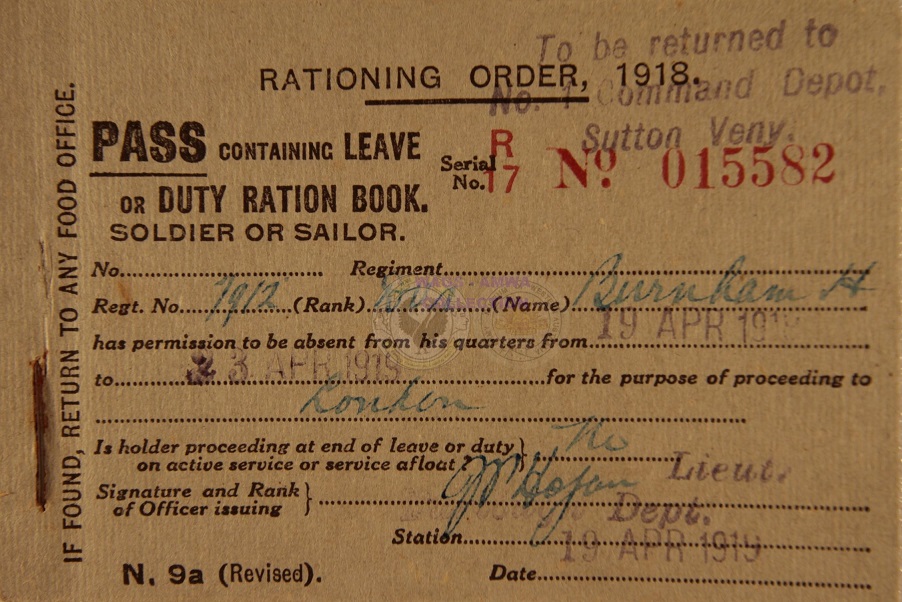 To be returned to
No. 1 Command Depot,
Sutton Veny.
RATIONING ORDER, 1918.
PASS CONTAINING LEAVE
OR DUTY RATION BOOK.
SOLDIER OR SAILOR.
Serial No. R 17 No. 015582
IF FOUND, RETURN TO ANY FOOD OFFICE.
No. Regiment
Regt. No. 7912 (Rank) (Name) Burnham H
has permission to be absent from his quarters from 19 APR 1919
to 23 APR 1919 for the purpose of proceeding to
London
Is holder proceeding at end of leave or duty
on active service or service afloat? No
Signature and Rank
of Officer issuing Lieut.
Dept.
Station 19 APR 1919
N. 9a (Revised). Date